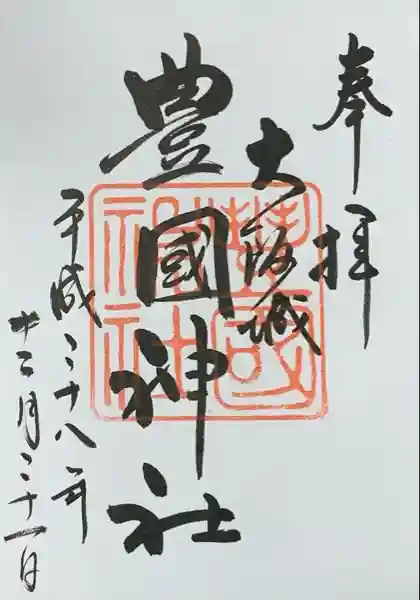 奉拝
大阪城
豊國神社
平成二十八年
十二月二十一日
豊國神社